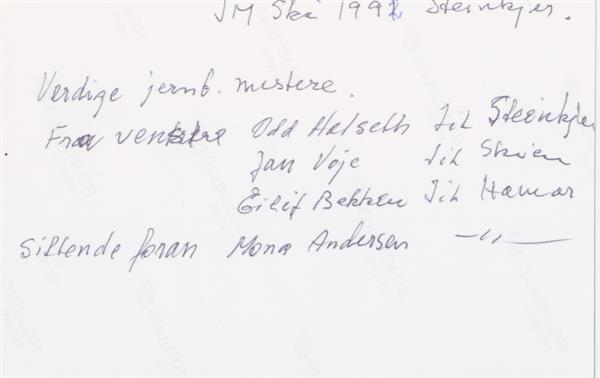 JM Ski 1992 Steinkjer.
Verdige jernb. mestere.
Fra venstre Odd Halseth Jil Steinkjer
Jan Voje Jil Skien
Eilif Bekken Jil Hamar
Sittende foran Mona Andersen —〃—